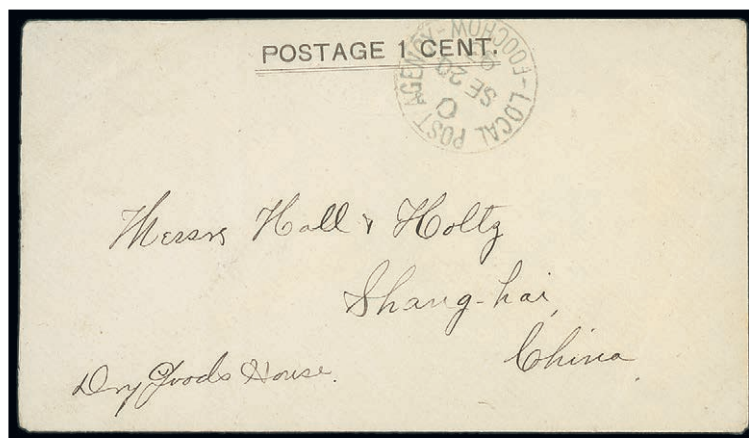 POSTAGE 1 CENT.
LOCAL POST AGENCY-FOOCHOW-
C
SE 20
Messrs Hall & Holtz
Shang-hai,
China
Dry Goods House.